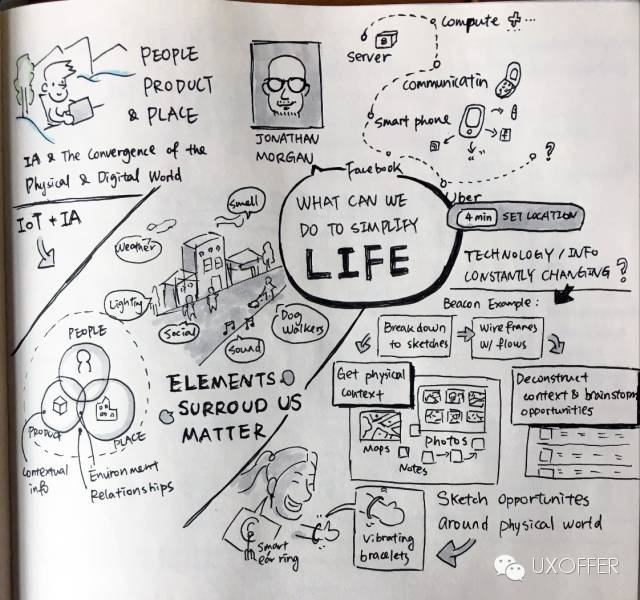 PEOPLE
PRODUCT
& PLACE
IA & The Convergence of the
Physical & Digital World
JONATHAN
MORGAN
compute
server
communicatin
smart phone
?
Facebook
Uber
4 min SET LOCATION
WHAT CAN WE
DO TO SIMPLIFY
LIFE
TECHNOLOGY / INFO
CONSTANTLY CHANGING ?
IoT + IA
PEOPLE
PRODUCT
PLACE
Contextual
info
Environment
Relationships
Smell
Weather
Lighting
Social
Sound
Dog
Walkers
ELEMENTS
SURROUD US
MATTER
Beacon Example:
Break down
to sketches
Wire frames
w/ flows
Get physical
context
Maps
Photos
Notes
Deconstruct
context & brainstorm
opportunities
Smart
ear ring
Vibrating
bracelets
Sketch opportunites
around physical world
UXOFFER